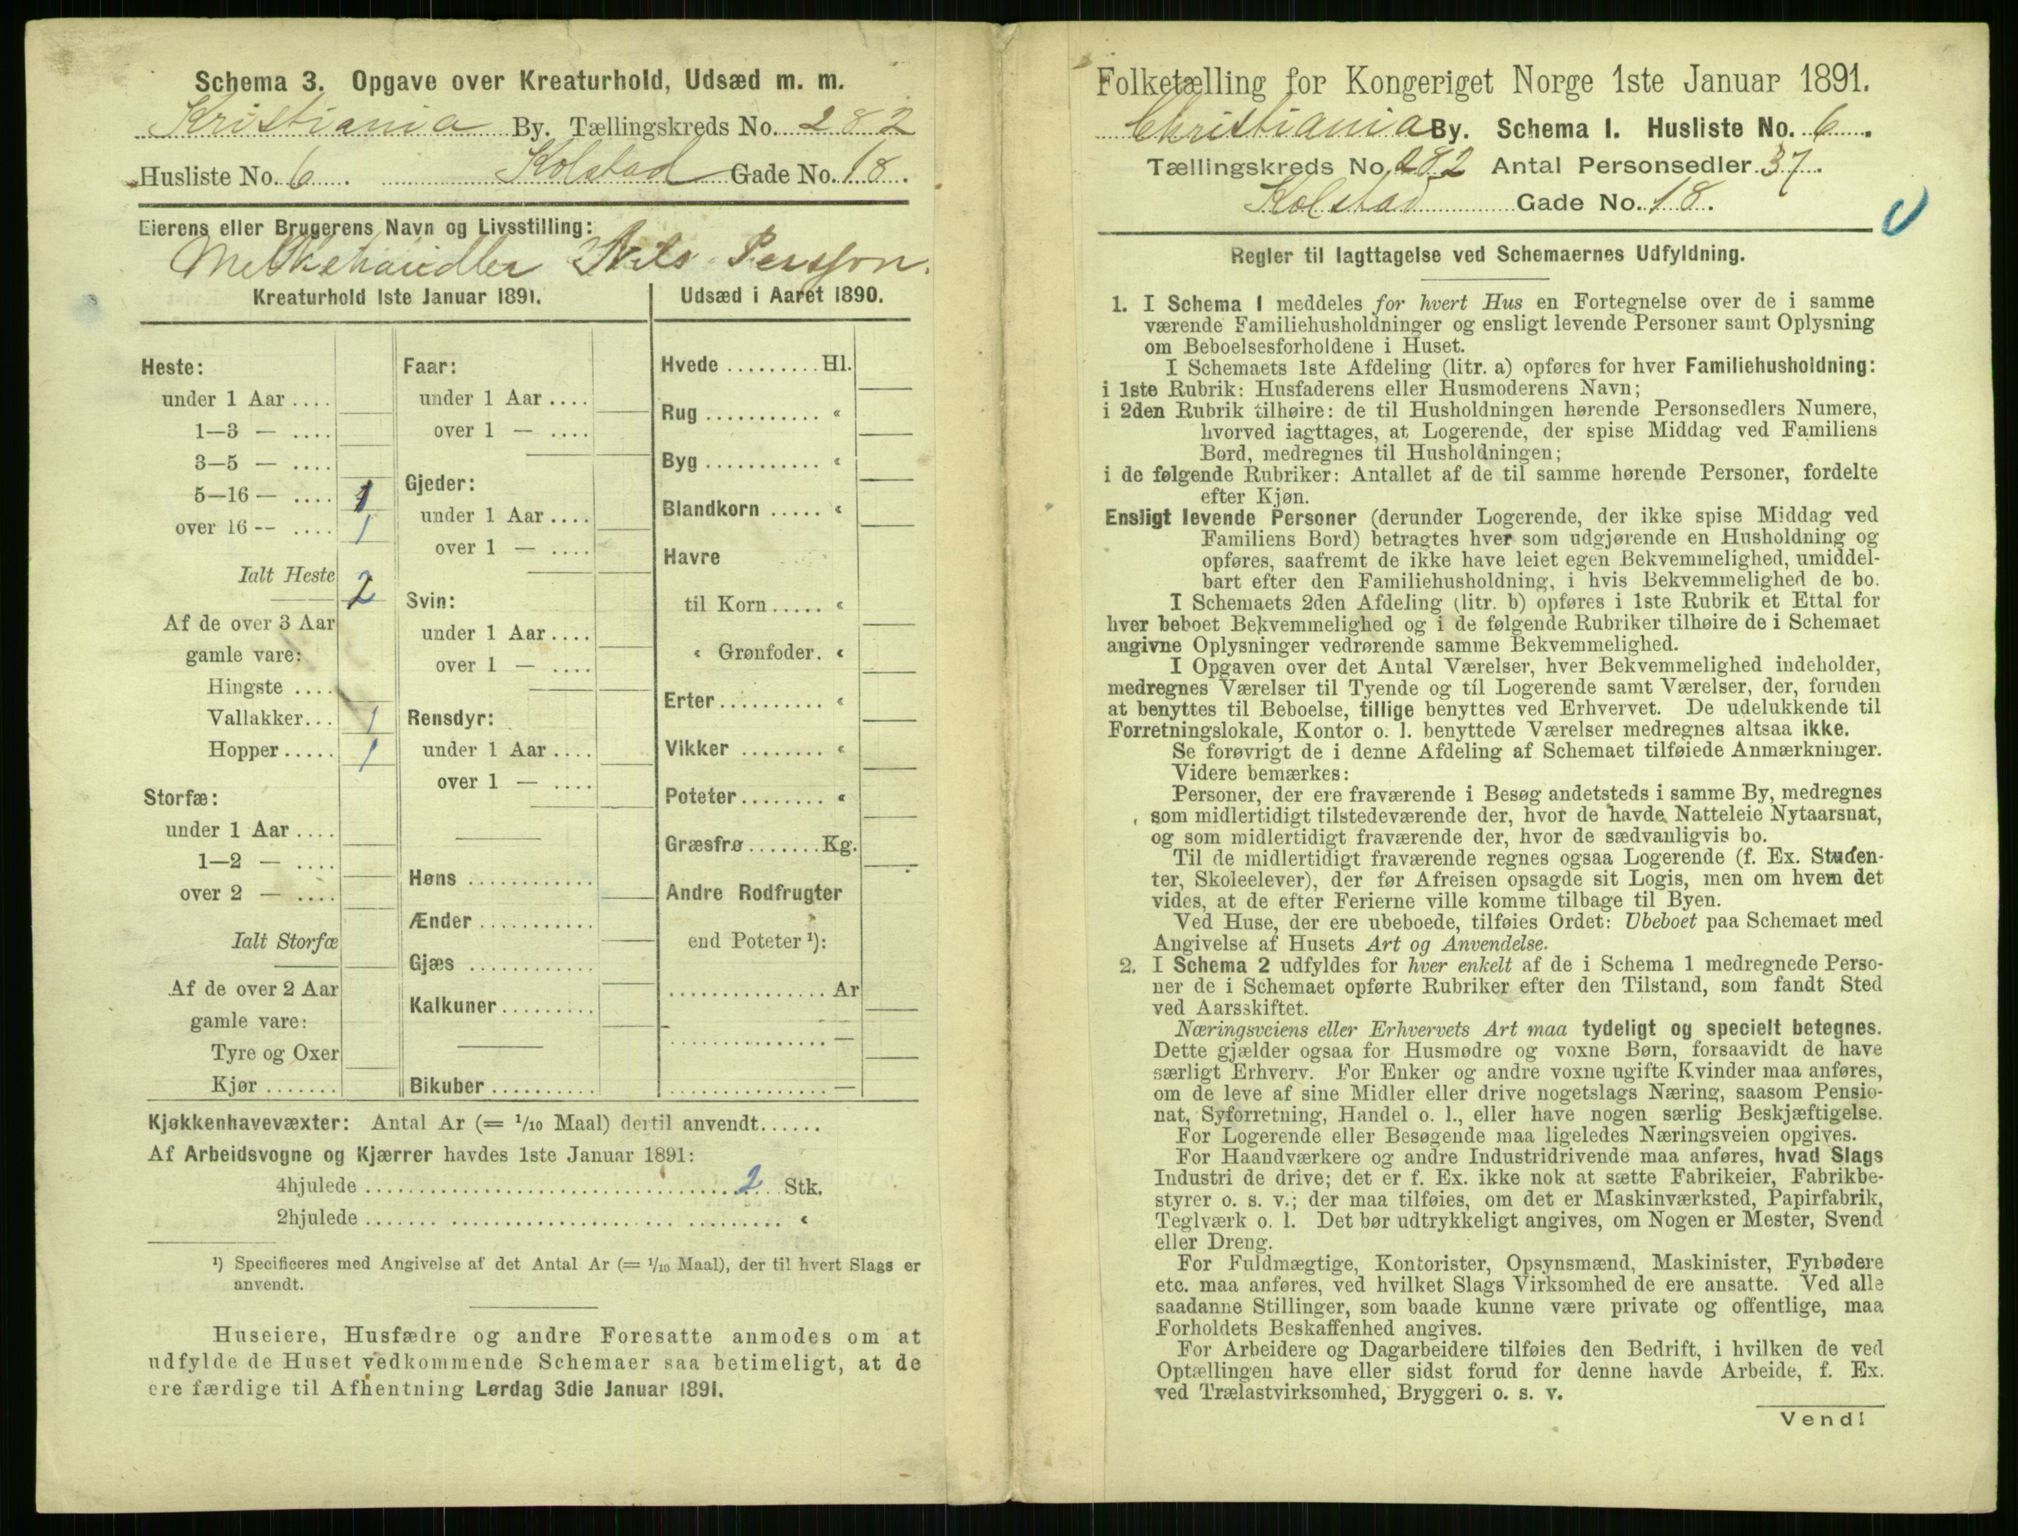 Schema 3. Opgave over Kreaturhold, Udsæd m. m.
Kristiania By. Tællingskreds No. 282
Husliste No. 6. Kolstad Gade No. 18.
Eierens eller Brugerens Navn og Livsstilling:
Melkehandler Nils Persson.
Kreaturhold 1ste Januar 1891.
Heste:
under 1 Aar ....
1—3 — ....
3—5 — ....
5—16 — .... 1
over 16 — .... 1
Ialt Heste 2
Af de over 3 Aar
gamle vare:
Hingste ....
Vallakker... 1
Hopper ..... 1
Storfæ:
under 1 Aar ....
1—2 — ....
over 2 — ....
Ialt Storfæ
Af de over 2 Aar
gamle vare:
Tyre og Oxer
Kjør .......
Faar:
under 1 Aar ....
over 1 — ....
Gjeder:
under 1 Aar ....
over 1 — ....
Svin:
under 1 Aar ....
over 1 — ....
Rensdyr:
under 1 Aar ....
over 1 — ....
Høns ............
Ænder ...........
Gjæs ............
Kalkuner .........
Bikuber ..........
Udsæd i Aaret 1890.
Hvede ......... Hl.
Rug ........... «
Byg ........... «
Blandkorn ..... «
Havre
til Korn ..... «
« Grønfoder. «
Erter .......... «
Vikker ........ «
Poteter ........ «
Græsfrø ....... Kg.
Andre Rodfrugter
end Poteter ¹):
............... Ar
............... —
............... —
Kjøkkenhavevæxter: Antal Ar (= 1/10 Maal) dertil anvendt......
Af Arbeidsvogne og Kjærrer havdes 1ste Januar 1891:
4hjulede ........ 2 Stk.
2hjulede ........ «
¹) Specificeres med Angivelse af det Antal Ar (= 1/10 Maal), der til hvert Slags er
anvendt.
Huseiere, Husfædre og andre Foresatte anmodes om at
udfylde de Huset vedkommende Schemaer saa betimeligt, at de
ere færdige til Afhentning Lørdag 3die Januar 1891.
Folketælling for Kongeriget Norge 1ste Januar 1891.
Christiania By. Schema I. Husliste No. 6.
Tællingskreds No. 282 Antal Personsedler 37.
Kolstad Gade No. 18.
Regler til Iagttagelse ved Schemaernes Udfyldning.
1. I Schema 1 meddeles for hvert Hus en Fortegnelse over de i samme
værende Familiehusholdninger og ensligt levende Personer samt Oplysning
om Beboelsesforholdene i Huset.
I Schemaets 1ste Afdeling (litr. a) opføres for hver Familiehusholdning:
i 1ste Rubrik: Husfaderens eller Husmoderens Navn;
i 2den Rubrik tilhøire: de til Husholdningen hørende Personsedlers Numere,
hvorved iagttages, at Logerende, der spise Middag ved Familiens
Bord, medregnes til Husholdningen;
i de følgende Rubriker: Antallet af de til samme hørende Personer, fordelte
efter Kjøn.
Ensligt levende Personer (derunder Logerende, der ikke spise Middag ved
Familiens Bord) betragtes hver som udgjørende en Husholdning og
opføres, saafremt de ikke have leiet egen Bekvemmelighed, umiddel-
bart efter den Familiehusholdning, i hvis Bekvemmelighed de bo.
I Schemaets 2den Afdeling (litr. b) opføres i 1ste Rubrik et Ettal for
hver beboet Bekvemmelighed og i de følgende Rubriker tilhøire de i Schemaet
angivne Oplysninger vedrørende samme Bekvemmelighed.
I Opgaven over det Antal Værelser, hver Bekvemmelighed indeholder,
medregnes Værelser til Tyende og til Logerende samt Værelser, der, foruden
at benyttes til Beboelse, tillige benyttes ved Erhvervet. De udelukkende til
Forretningslokale, Kontor o. l. benyttede Værelser medregnes altsaa ikke.
Se forøvrigt de i denne Afdeling af Schemaet tilføiede Anmærkninger.
Videre bemærkes:
Personer, der ere fraværende i Besøg andetsteds i samme By, medregnes
som midlertidigt tilstedeværende der, hvor de havde Natteleie Nytaarsnat,
og som midlertidigt fraværende der, hvor de sædvanligvis bo.
Til de midlertidigt fraværende regnes ogsaa Logerende (f. Ex. Studen-
ter, Skoleelever), der før Afreisen opsagde sit Logis, men om hvem det
vides, at de efter Ferierne ville komme tilbage til Byen.
Ved Huse, der ere ubeboede, tilføies Ordet: Ubeboet paa Schemaet med
Angivelse af Husets Art og Anvendelse.
2. I Schema 2 udfyldes for hver enkelt af de i Schema 1 medregnede Perso-
ner de i Schemaet opførte Rubriker efter den Tilstand, som fandt Sted
ved Aarsskiftet.
Næringsveiens eller Erhvervets Art maa tydeligt og specielt betegnes.
Dette gjælder ogsaa for Husmødre og voxne Børn, forsaavidt de have
særligt Erhverv. For Enker og andre voxne ugifte Kvinder maa anføres,
om de leve af sine Midler eller drive nogetslags Næring, saasom Pensio-
nat, Syforretning, Handel o. l., eller have nogen særlig Beskjæftigelse.
For Logerende eller Besøgende maa ligeledes Næringsveien opgives.
For Haandværkere og andre Industridrivende maa anføres, hvad Slags
Industri de drive; det er f. Ex. ikke nok at sætte Fabrikeier, Fabrikbe-
styrer o. s. v.; der maa tilføies, om det er Maskinværksted, Papirfabrik,
Teglværk o. l. Det bør udtrykkeligt angives, om Nogen er Mester, Svend
eller Dreng.
For Fuldmægtige, Kontorister, Opsynsmænd, Maskinister, Fyrbødere
etc. maa anføres, ved hvilket Slags Virksomhed de ere ansatte. Ved alle
saadanne Stillinger, som baade kunne være private og offentlige, maa
Forholdets Beskaffenhed angives.
For Arbeidere og Dagarbeidere tilføies den Bedrift, i hvilken de ved
Optællingen have eller sidst forud for denne havde Arbeide, f. Ex.
ved Trælastvirksomhed, Bryggeri o. s. v.
Vend!